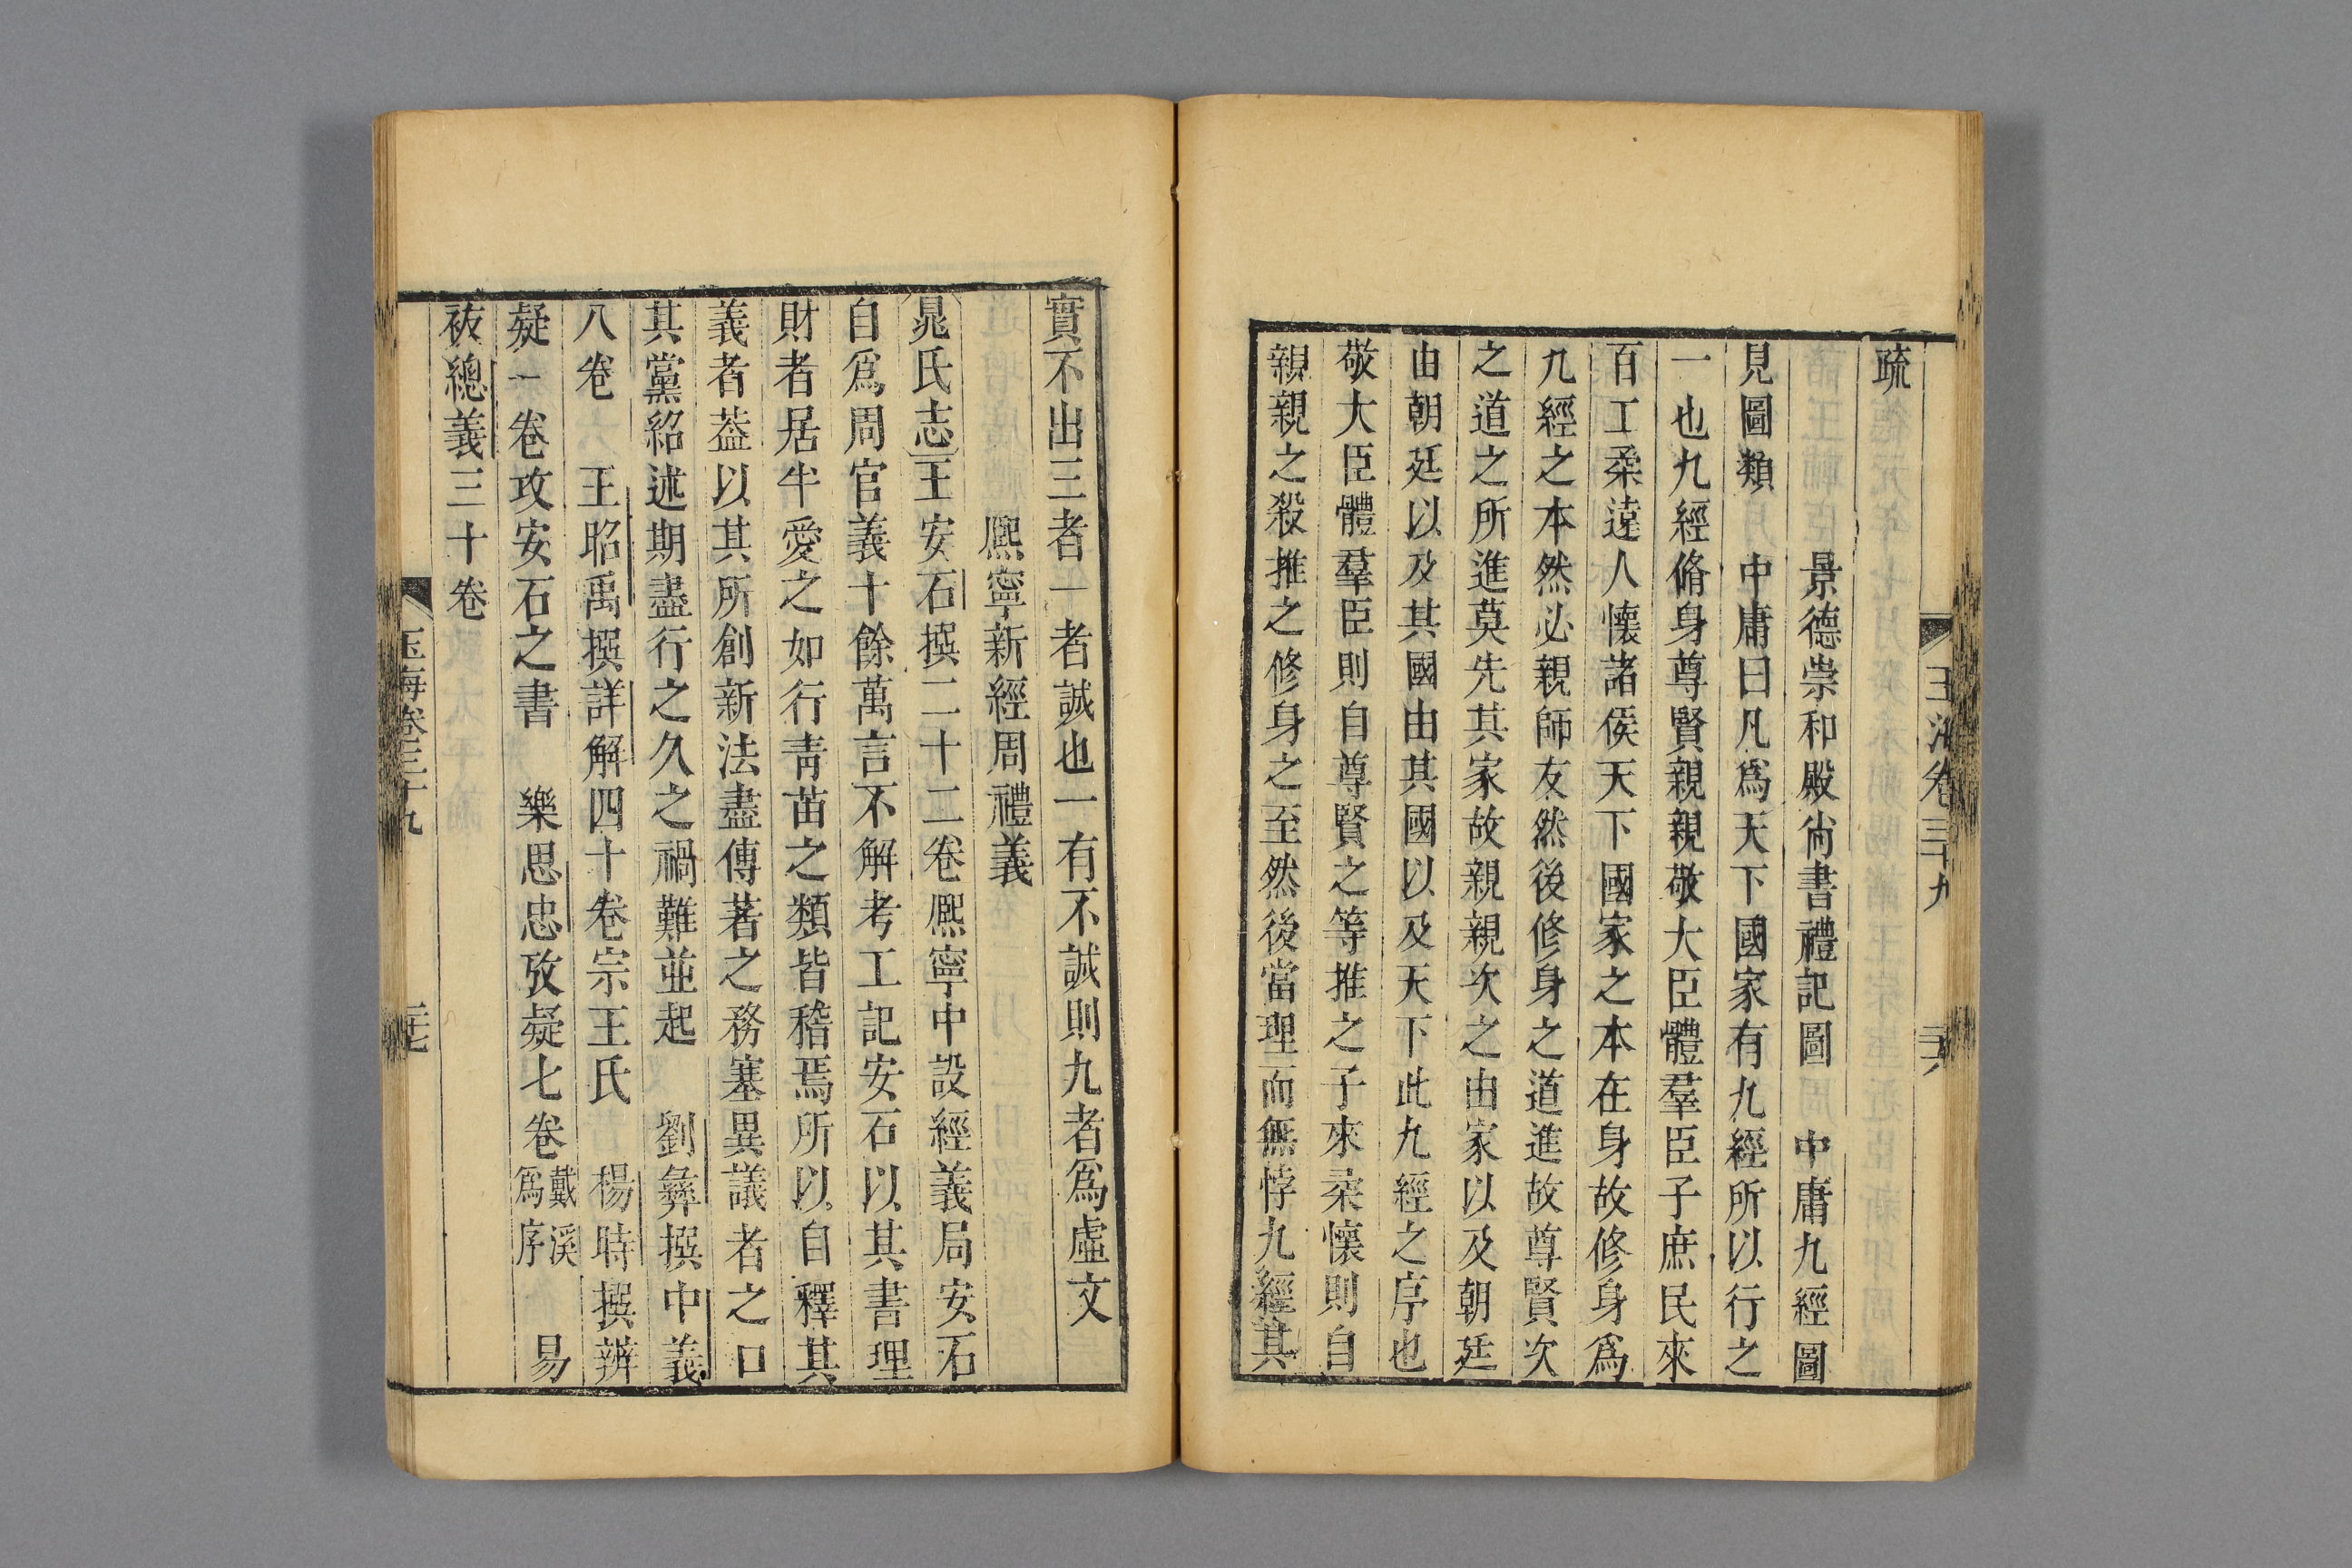 玉海卷三十九
疏
景德崇和殿尙書禮記圖 中庸九經圖
見圖類 中庸曰凡爲天下國家有九經所以行之
一也九經脩身尊賢親親敬大臣體羣臣子庶民來
百工柔遠人懷諸侯天下國家之本在身故修身爲
九經之本然必親師友然後修身之道進故尊賢次
之道之所進莫先其家故親親次之由家以及朝廷
由朝廷以及其國由其國以及天下此九經之序也
敬大臣體羣臣則自尊賢之等推之子來柔懷則自
親親之殺推之修身之至然後當理而無悖九經其
實不出三者一者誠也一有不誠則九者爲虛文
熙寧新經周禮義
晁氏志王安石撰二十二卷熙寧中設經義局安石
自爲周官義十餘萬言不解考工記安石以其書理
財者居半愛之如行靑苗之類皆稽焉所以自釋其
義者葢以其所創新法盡傅著之務塞異議者之口
其黨紹述期盡行之久之禍難並起 劉彝撰中義
八卷 王昭禹撰詳解四十卷宗王氏 楊時撰辨
疑一卷攻安石之書 樂思忠攷疑七卷戴溪爲序 易
袚總義三十卷
玉海卷三十九